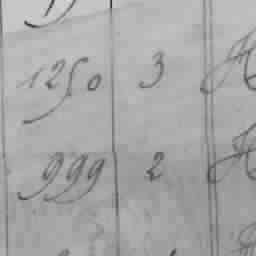 1250 3
999 2